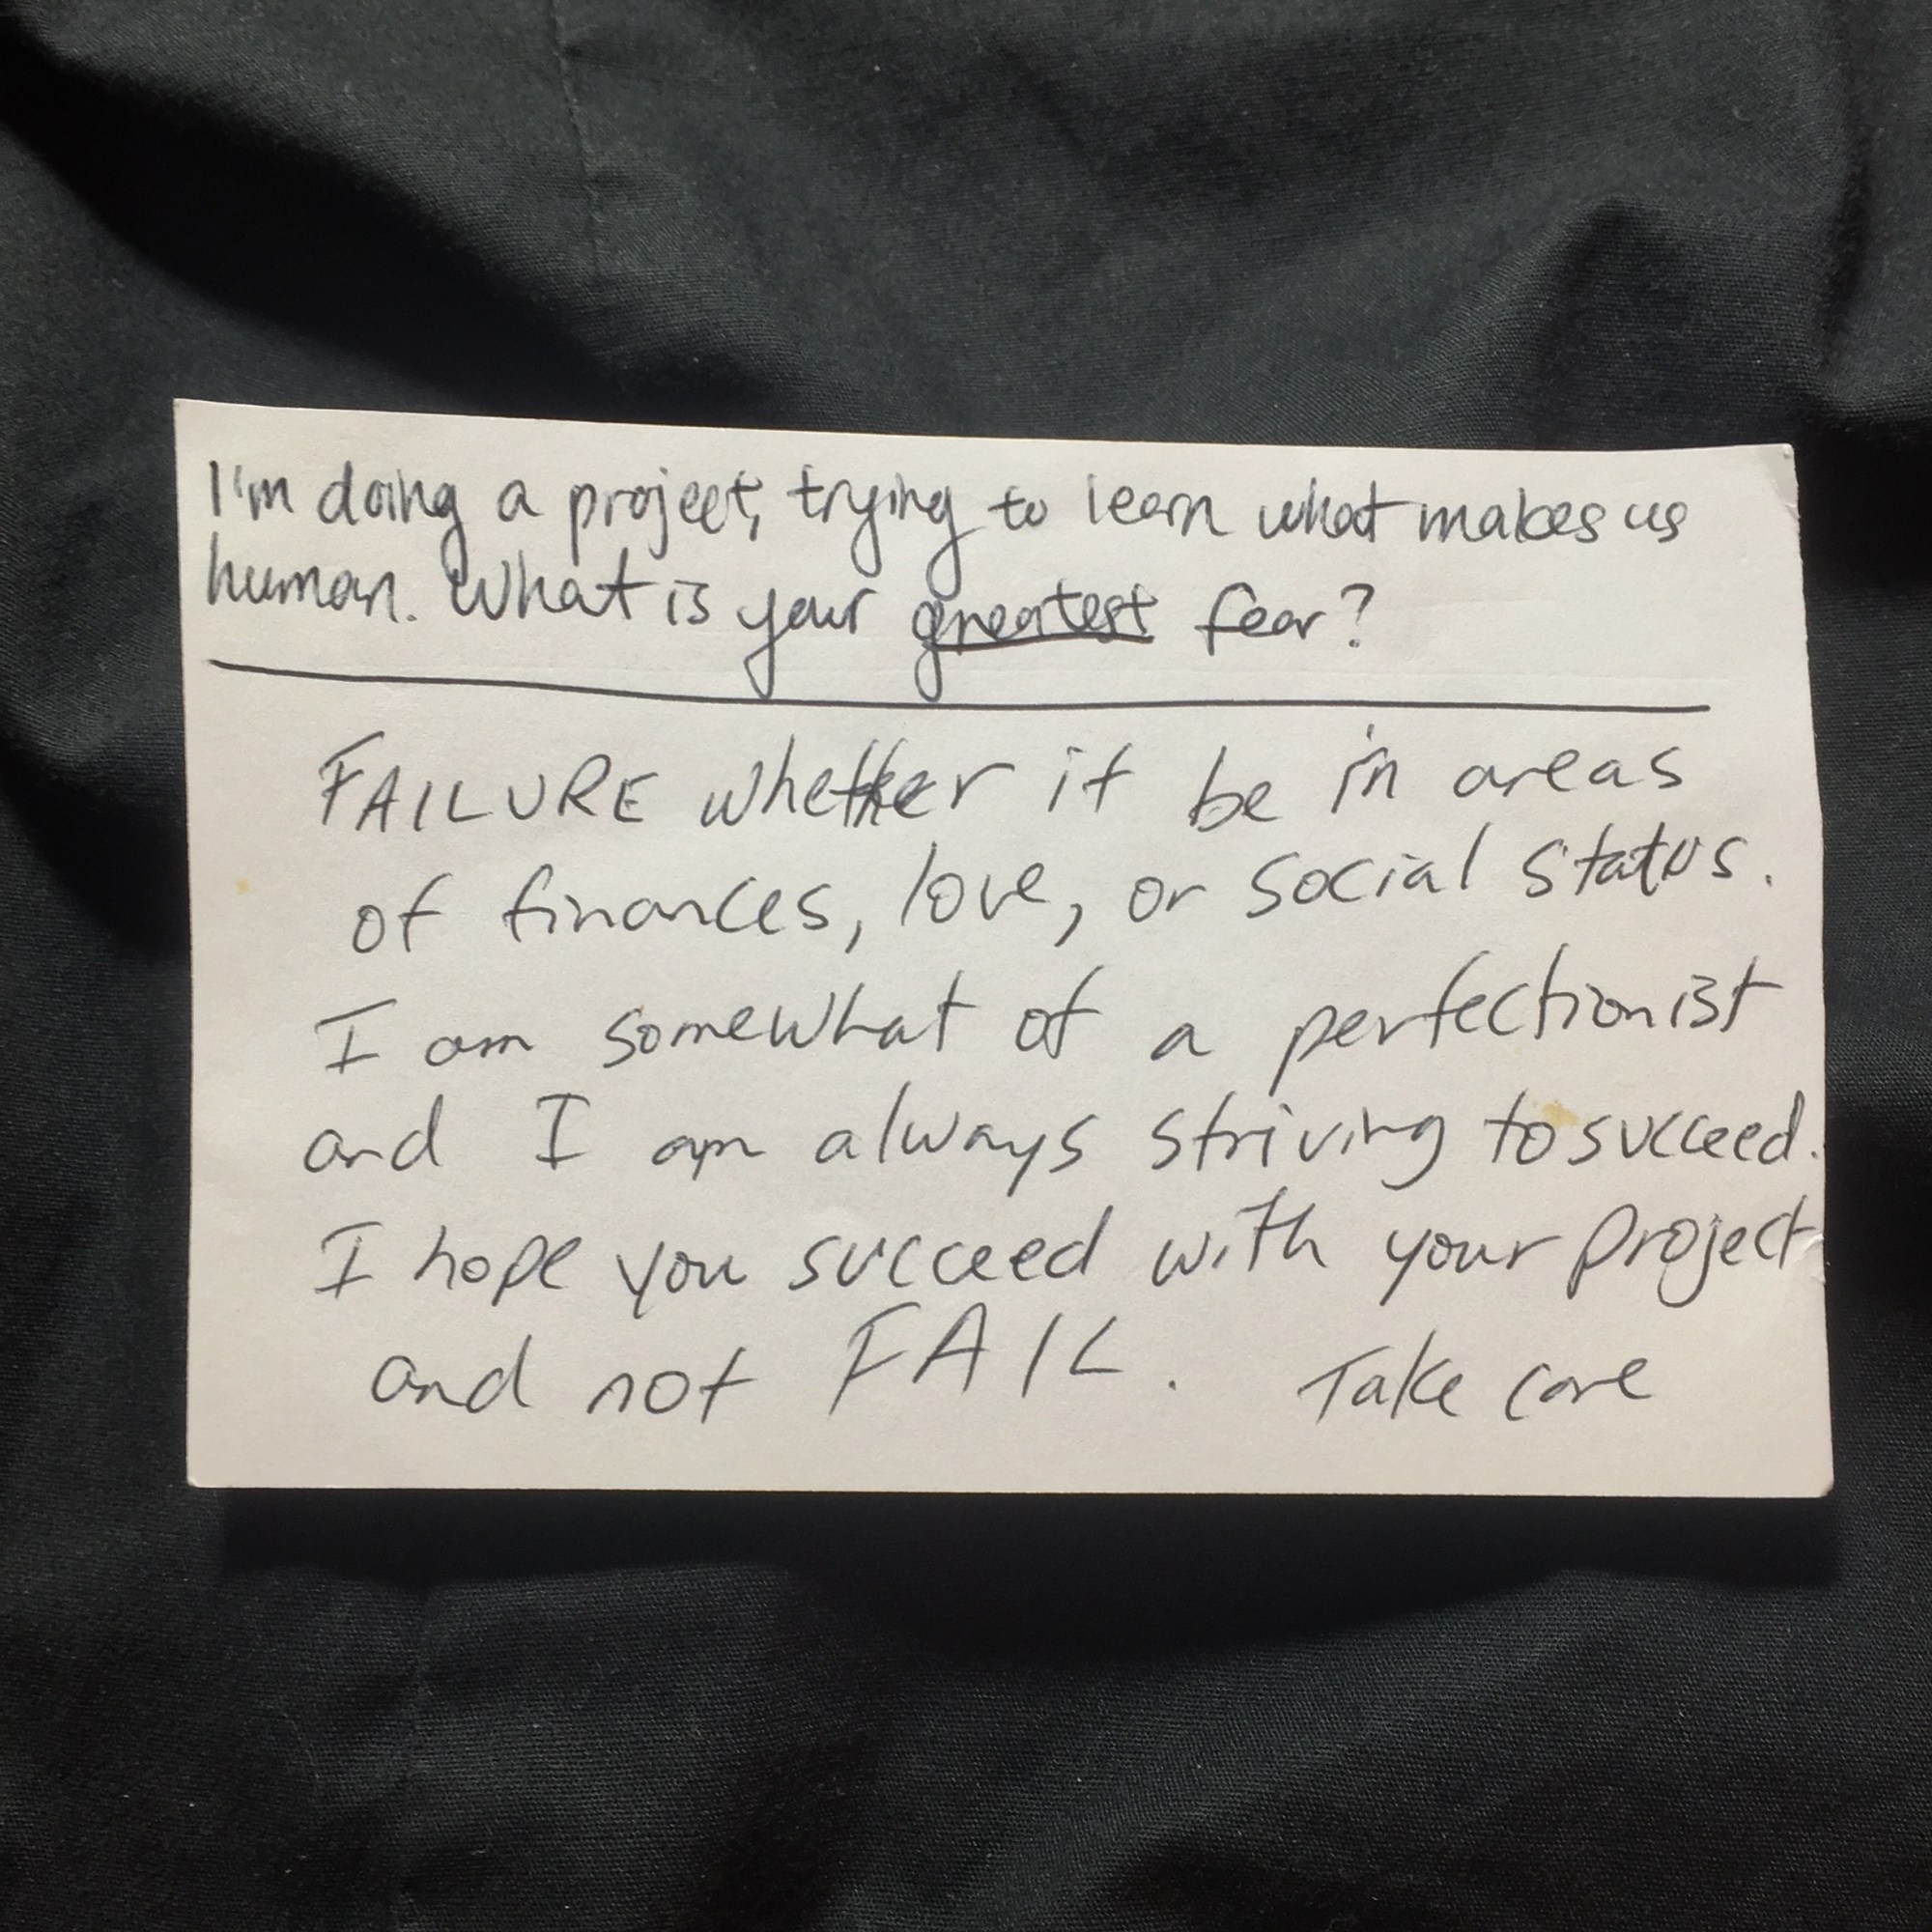 I'm doing a project, trying to learn what makes us
human. What is your greatest fear?
FAILURE whether it be in areas
of finances, love, or social status.
I am somewhat of a perfectionist
and I am always striving to succeed.
I hope you succeed with your project
and not FAIL. Take care